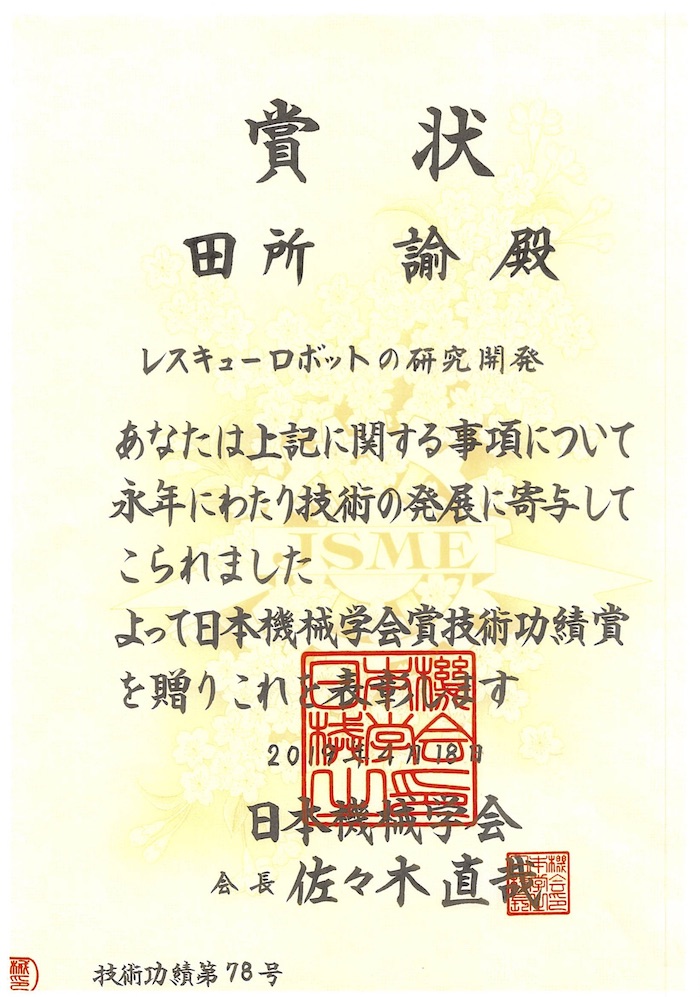 賞状
田所 諭 殿
レスキューロボットの研究開発
あなたは上記に関する事項について
永年にわたり技術の発展に寄与して
こられました
JSME
よって日本機械学会賞技術功績賞
を贈りこれを表彰します
2019年4月18日
日本機械学会
会長 佐々木直哉
技術功績第78号